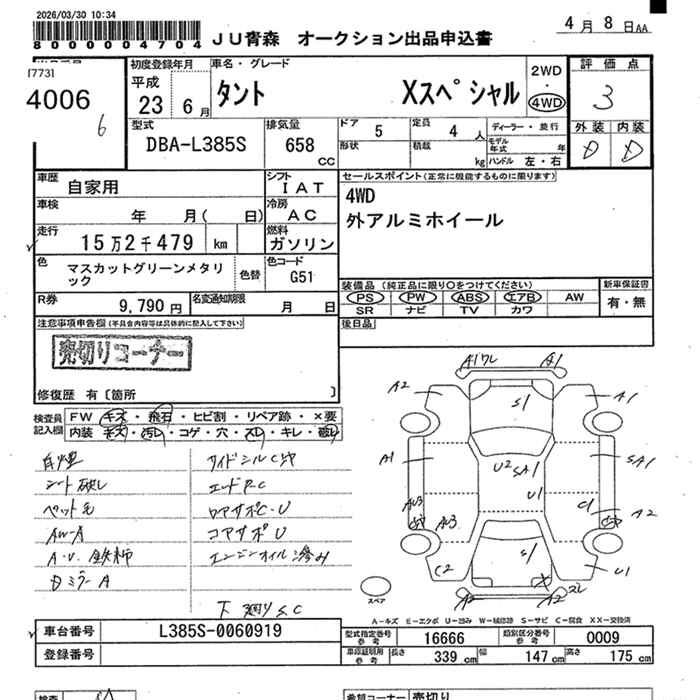 2026/03/30 10:34
8000004704 JU青森 オークション出品申込書 4月8日AA
[773]
4006
6
初度登録年月 平成 23 6月
車名・グレード タント Xスペシャル
2WD・4WD
評価点 3
外装 内装
D D
型式 DBA-L385S
排気量 658 cc
ドア 5 定員 4 人
形状 積載 kg
ディーラー・並行
モデル年式 年
ハンドル 左・右
車歴 自家用
シフト IAT
車検 年 月( 日)
冷房 AC
走行 15万2千479 km
燃料 ガソリン
色 マスカットグリーンメタリック
色替
色コード G51
R券 9,790円
名変通知期限 月 日
セールスポイント(正常に機能するものに限ります)
4WD
外アルミホイール
装備品(純正品に限り○をつけてください)
PS PW ABS エアB AW
SR ナビ TV カワ
新車保証書 有・無
後日品
注意事項申告欄(不具合内容等は具体的に記入して下さい)
売切りコーナー
修復歴 有〔箇所 〕
検査員記入欄
FW キズ・飛石・ヒビ割・リペア跡・×要
内装 キズ・汚レ・コゲ・穴・スレ・キレ・破レ
シート破レ
ペット毛
AW-A
A.U.鉄柿
Dミラー A
サイドシルC穴
エンドP.C
ロアサポC・U
コアサポU
エンジンオイル滲み
下廻りS.C
A1ワレ A1
A2 S1 A1
A1 U2 SA1 SA1
U1
AU3 AU3 C1 A2
C2 S1 U1
A2 A2
スペア
A-キズ E-エクボ U-凹み W-補修跡 S-サビ C-腐食 XX-交換済
車台番号 L385S-0060919
登録番号
型式指定番号 参考 16666
類別区分番号 参考 0009
車庫証明用 参考 長さ 339cm 幅 147cm 高さ 175cm
希望コーナー 売切り